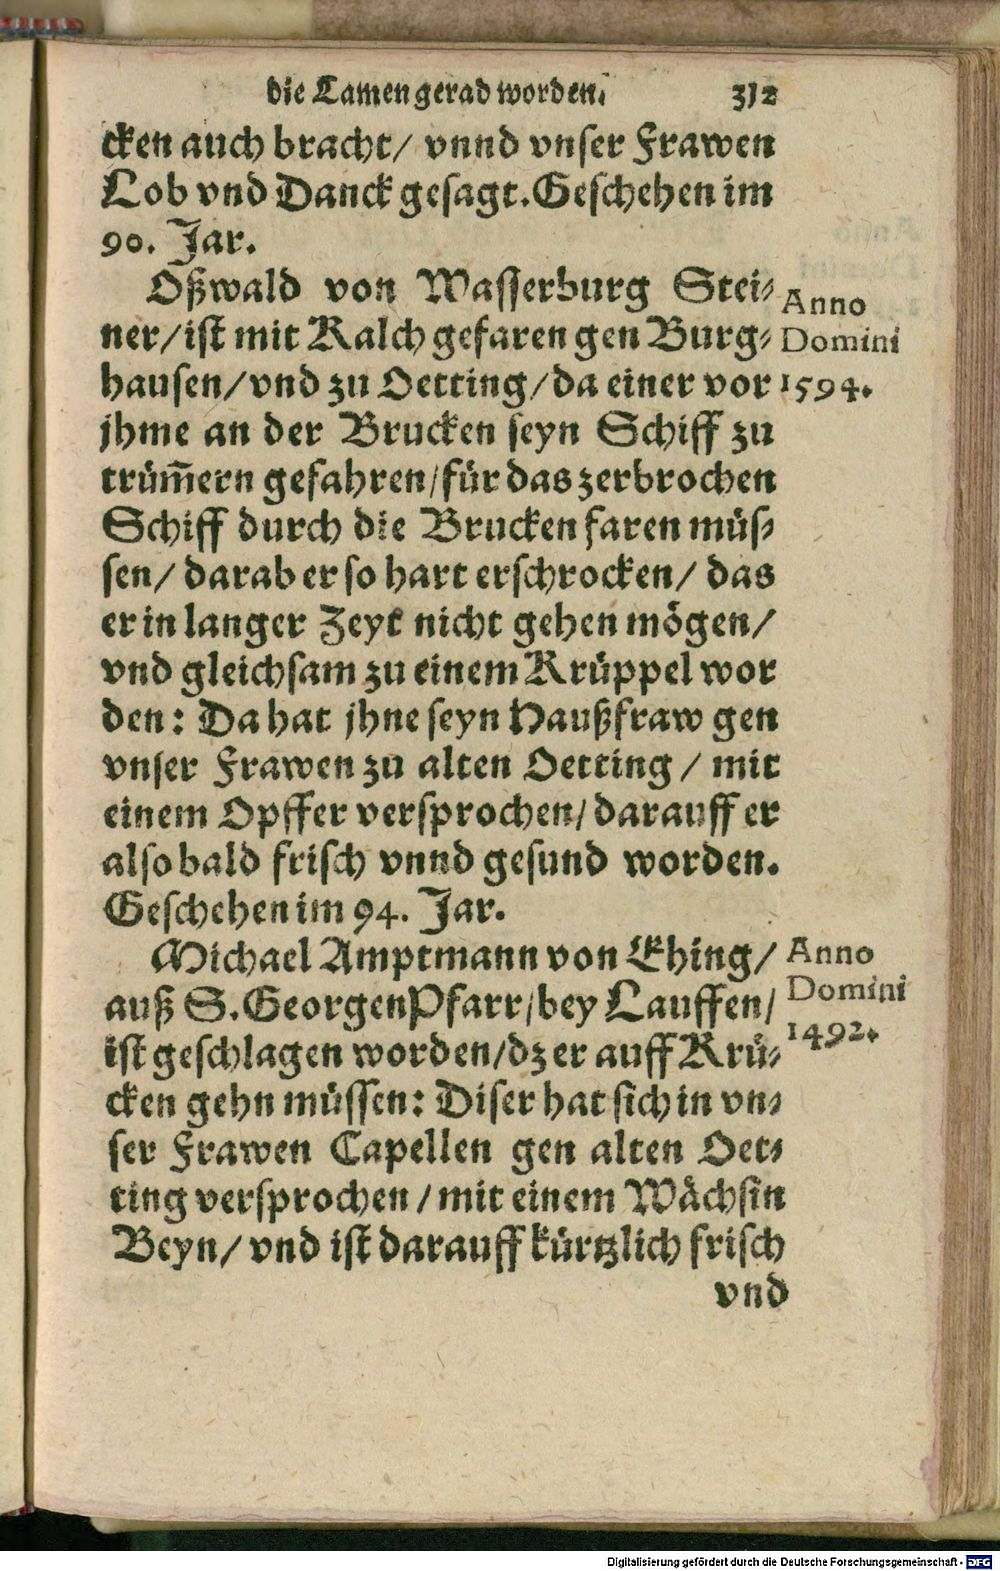 die Lamen gerad worden. 312
cken auch bracht/ vnnd vnser Frawen
Lob vnd Danck gesagt. Geschehen im
90. Jar.
Oßwald von Wasserburg Stei-
ner/ ist mit Kalch gefaren gen Burg-
hausen/ vnd zu Oetting/ da einer vor
jhme an der Brucken seyn Schiff zu
trüm̄ern gefahren/ für das zerbrochen
Schiff durch die Brucken faren müs-
sen/ darab er so hart erschrocken/ das
er in langer Zeyt nicht gehen mögen/
vnd gleichsam zu einem Krüppel wor
den: Da hat jhne seyn Haußfraw gen
vnser Frawen zu alten Oetting/ mit
einem Opffer versprochen/ darauff er
also bald frisch vnnd gesund worden.
Geschehen im 94. Jar.
Anno
Domini
1594.
Michael Amptmann von Ehing/
auß S. Georgen Pfarr/ bey Lauffen/
ist geschlagen worden/ dz er auff Krü-
cken gehn müssen: Diser hat sich in vn-
ser Frawen Capellen gen alten Oet-
ting versprochen/ mit einem Wächsin
Beyn/ vnd ist darauff kürtzlich frisch
vnd
Anno
Domini
1492.
Digitalisierung gefördert durch die Deutsche Forschungsgemeinschaft - DFG